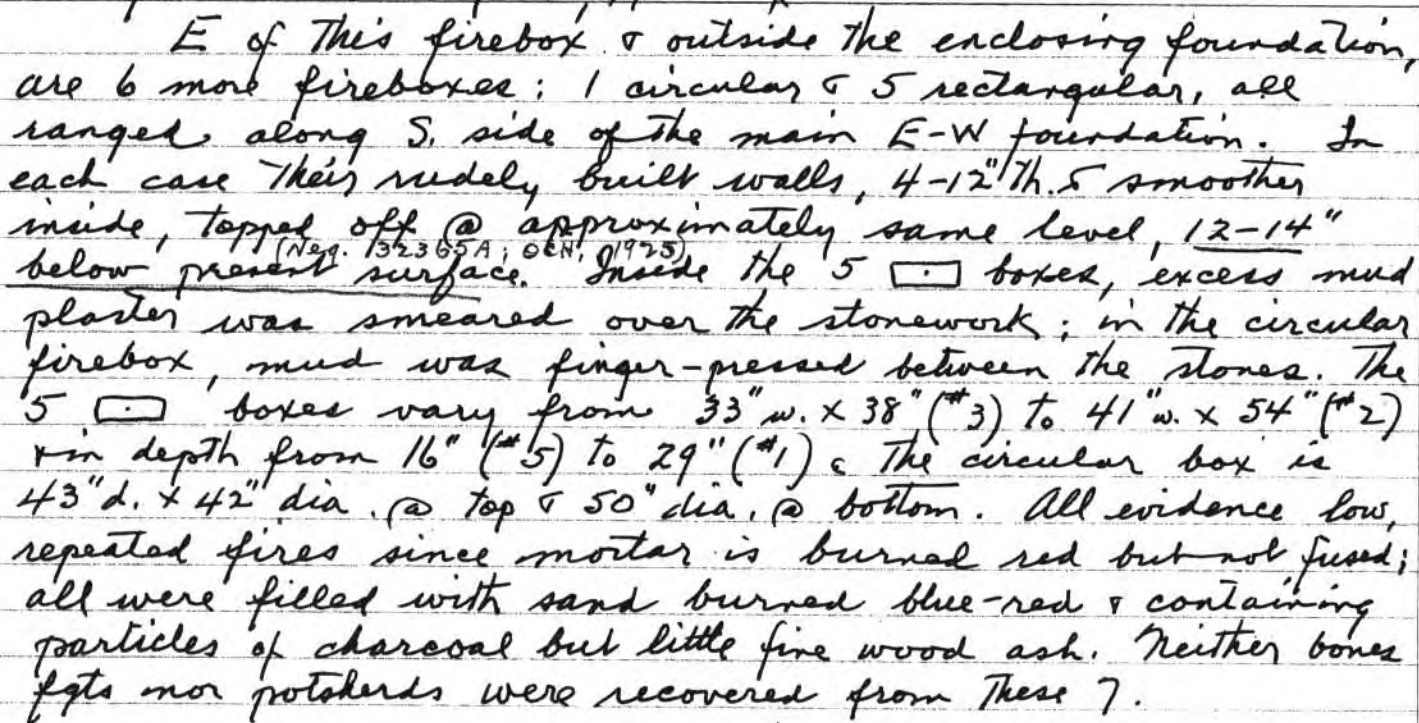 E of this firebox & outside the enclosing foundation,
are 6 more fireboxes; 1 circular & 5 rectangular, all
ranged along S. side of the main E-W foundation. In
each case their rudely built walls, 4-12" th. & smoother
inside, topped off @ approximately same level, 12-14"
(Neg. 32365A; OCH, 1925)
below present surface. Inside the 5 boxes, excess mud
plaster was smeared over the stonework; in the circular
firebox, mud was finger-pressed between the stones. The
5 boxes vary from 33" w. x 38" (#3) to 41" w. x 54" (#2)
& in depth from 16" (#5) to 29" (#1). The circular box is
43" d. x 42" dia. @ top & 50" dia. @ bottom. All evidence low,
repeated fires since mortar is burned red but not fused;
all were filled with sand burned blue-red & containing
particles of charcoal but little fine wood ash. Neither bones
fgts nor potsherds were recovered from these 7.